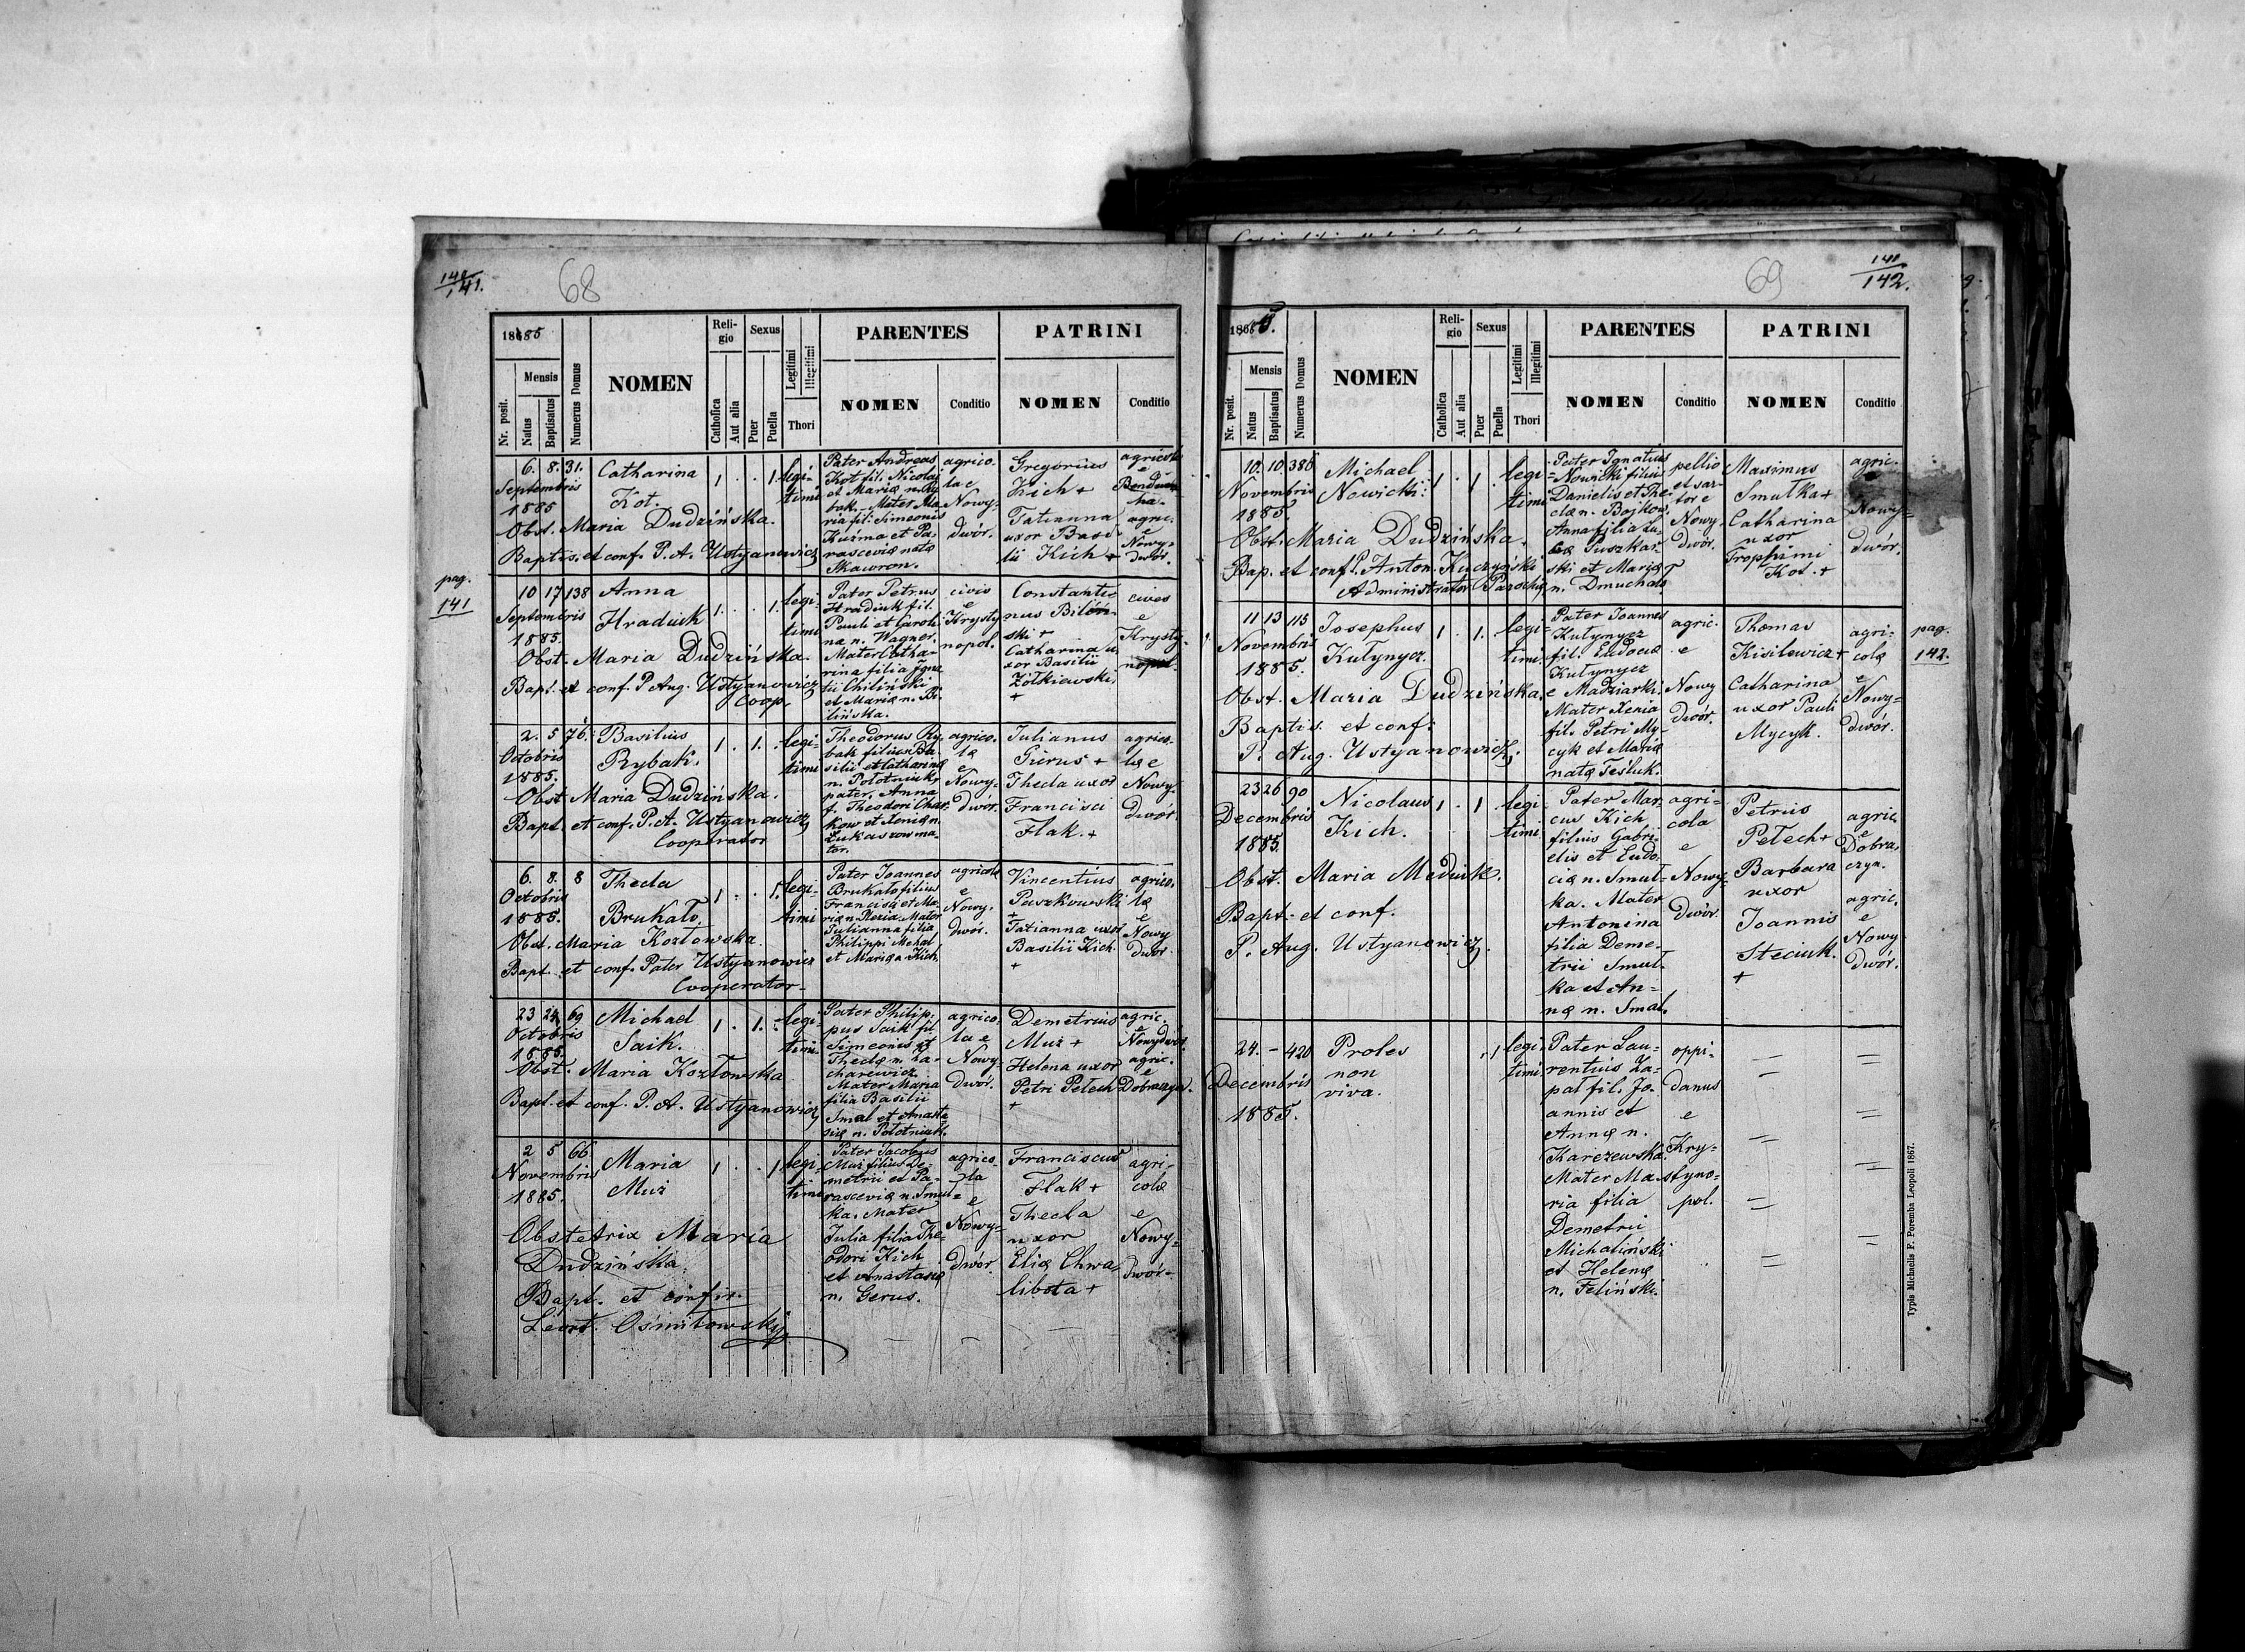 140/141.
68
1885
Nr. posit.
Mensis
Natus
Baptisatus
Numerus Domus
NOMEN
Religio
Catholica
Aut alia
Sexus
Puer
Puella
Legitimi
Illegitimi
Thori
PARENTES
NOMEN
Conditio
PATRINI
NOMEN
Conditio
6. 8. 31.
Septembris
1885
Catharina
Kot.
1 . . 1.
legi-
timi
Pater Andreas
Kot fil. Nicolai
et Mariæ n. Ry
bak. Mater Ma
ria fil. Simeonis
Kuźma et Pa-
rasceviæ natæ
Skawron.
agrico-
lae
Nowy-
dwór.
Gregorius
Kich +
Tatianna
uxor Basi
lii Kich +
agricola
e
agric.
e
Nowy-
dwór.
Obst. Maria Dudzińska.
Baptis. et conf. P. A. Ustyanowicz
pag.
141
10 17 138
Septembris
1885.
Anna
Hradiuk
1. . . 1.
legi-
timi
Pater Petrus
Hradiuk fil.
Pauli et Caroli
na n. Wagner.
Mater Catha-
rina filia Igna
tii Chiliński
et Mariæ n. Bi-
lińska.
civis
e
Krysty
nopol.
Constanti
nus Biliń-
ski +
Catharina u.
xor Basilii
Żółkiewski.
+
cives
e
Krysty-
nopol.
Obst. Maria Dudzińska.
Bapt. et conf. P. Aug. Ustyanowicz
Coop.
2. 5 76.
Octobris
1885.
Basilius
Rybak.
1 . 1. .
legi-
timi
Theodorus Ry.
bak filius Ba-
silii et Catharinæ
n. Połotniuk
pater. Anna
f. Theodori Char
kow et Xeniæ n.
Łukaszow ma-
ter.
agrico.
læ
e
Nowy-
dwór.
Julianus
Gierus +
Thecla uxor
Francisci
Flak. +
agrico-
læ e
Nowy-
dwór.
Obst. Maria Dudzińska.
Bapt. et conf. P. A. Ustyanowicz
Cooperator
6. 8. 8
Octobris
1885.
Thecla
Brukało.
1 . . 1.
legi-
timi
Pater Joannes
Brukało filius
Francisci et Ma
riæ n. Rezia. Mater
Julianna filia
Philippi Mehal
et Mariæ n Kich.
agricola
e
Nowy-
dwór.
Vincentius
Paszkowski
+
Tatianna uxor
Basilii Kich.
+
agrico-
læ
e
Nowy
dwór.
Obst. Maria Kozłowska.
Bapt. et conf. Pater Ustyanowicz
Cooperator-
23 24 69
Octobris
1885.
Michael
Saik.
1 . 1. .
legi-
timi.
Pater Philip-
pus Saik fil.
Simeonis et
Theclæ n. Za-
charewicz.
Mater Maria
filia Basilii
Smal et Anasta
siæ n. Połotniuk.
agrico.
la e
Nowy-
dwór.
Demetrius
Muż +
Helena uxor
Petri Pełech
+
agric.
e
Nowydwór.
agric.
e
Dobraczyn.
Obst. Maria Kozłowska
Bapt. et conf. P. A. Ustyanowicz
2 5 66
Novembris
1885.
Maria
Muż
1 . . 1
legi-
timi
Pater Jacobus
Muż filius De-
metrii et Pa-
rasceviæ n. Smuł-
ka. Mater
Julia filia The-
odori Kich
et Anastasiæ
n. Gerus.
agrico-
la
e
Nowy-
dwór.
Franciscus
Flak +
Thecla
uxor
Eliæ Chwa-
libota +
agri-
colæ
e
Nowy-
dwór-
Obstetrix Maria
Dudzińska.
Bapt. et confir.
Leont. Ośmiłowskij
141/142.
69
1885.
Nr. posit.
Mensis
Natus
Baptisatus
Numerus Domus
NOMEN
Religio
Catholica
Aut alia
Sexus
Puer
Puella
Legitimi
Illegitimi
Thori
PARENTES
NOMEN
Conditio
PATRINI
NOMEN
Conditio
10. 10 386
Novembris
1885.
Michael
Nowicki
1 . 1 .
legi-
timi
Pater Ignatius
Nowicki filius
Danielis et The
clæ n. Bojkow.
Anna filia Lu-
cæ Puszkar
ski et Mariæ
n. Dmuchała
pellio
et sar-
tor e
Nowy
dwór.
Maximus
Smułka +
Catharina
uxor
Trophimi
Kot. +
agric.
Nowy-
dwór.
Obst. Maria Dudzińska.
Bap. et conf. P. Anton. Kuczyński
Administrator Parochiæ
11 13 115
Novembri
1885.
Josephus
Kułynycz.
1 . 1. .
legi-
timi
Pater Joannes
Kułynycz
fil. Eudociæ
Kułynycz
e Madziarki.
Mater Xenia
fil. Petri My-
cyk et Mariæ
natæ Teśluk.
agric.
e
Nowy
dwór.
Thomas
Kisilewicz +
Catharina
uxor Pauli
Mycyk.
agri-
colæ
e
Nowy-
dwór.
pag.
142.
Obst. Maria Dudzińska.
Baptis. et conf.
P. Aug. Ustyanowicz.
23 26 90
Decembris
1885.
Nicolaus
Kich.
1 . 1
legi-
timi
Pater Mar-
cus Kich
filius Gabri-
elis et Eudo-
ciæ n. Smuł-
ka. Mater
Antonina
filia Deme-
trii Smuł-
ka et An-
næ n. Smal.
agri-
cola
e
Nowy-
dwór.
Petrus
Pełech +
Barbara
uxor
Joannis
Steciuk.
+
agric.
e
Dobra-
czyn.
agric.
e
Nowy
dwór.
Obst. Maria Mediuk.
Bapt. et conf.
P. Aug. Ustyanowicz.
24. - 420
Decembris
1885.
Proles
non
viva.
. 1
legi-
timi
Pater Lau-
rentius Ła-
pat fil. Jo-
annis et
Annæ n.
Karczewska.
Mater Ma-
ria filia
Demetrii
Michaliński
et Helenæ
n. Feliński.
oppi-
danus
e
Kry-
styno-
pol.
Typis Michaelis F. Poremba Leopoli 1867.